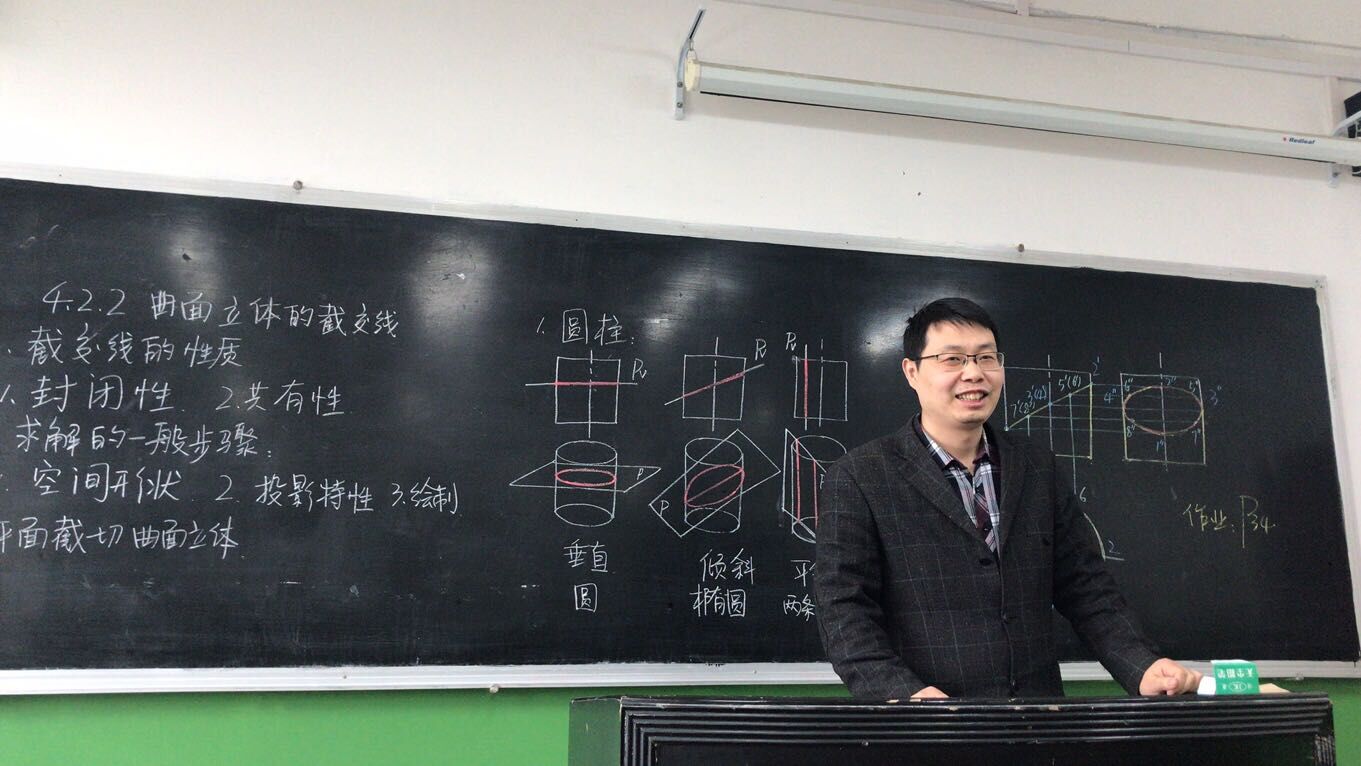 4.2.2 曲面立体的截交线
、截交线的性质
1. 封闭性 2.共有性
求解的一般步骤:
空间形状 2. 投影特性 3.绘制
平面截切曲面立体
1. 圆柱:
Pv
Pv
Pv
P
P
P
垂直
倾斜
平
圆
椭圆
两条
7'(8') 3'(4') 5'(6') 2'
4" 6" 2" 5" 3"
8" 1" 7"
6
2
作业: P34
Redleaf
天宝朝笔